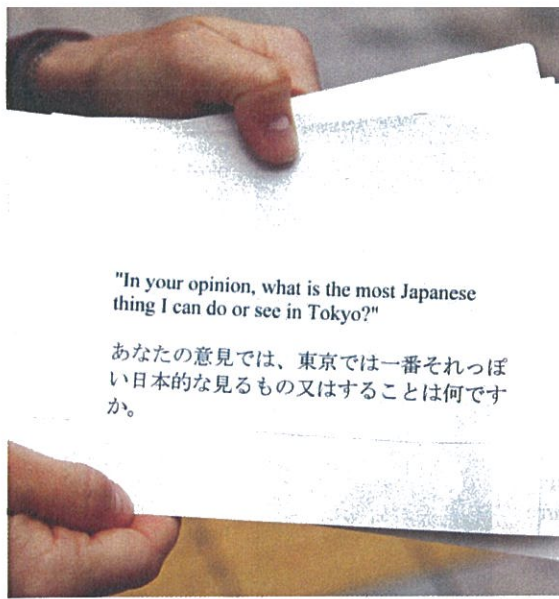 "In your opinion, what is the most Japanese
thing I can do or see in Tokyo?"
あなたの意見では、東京では一番それっぽ
い日本的な見るもの又はすることは何です
か。